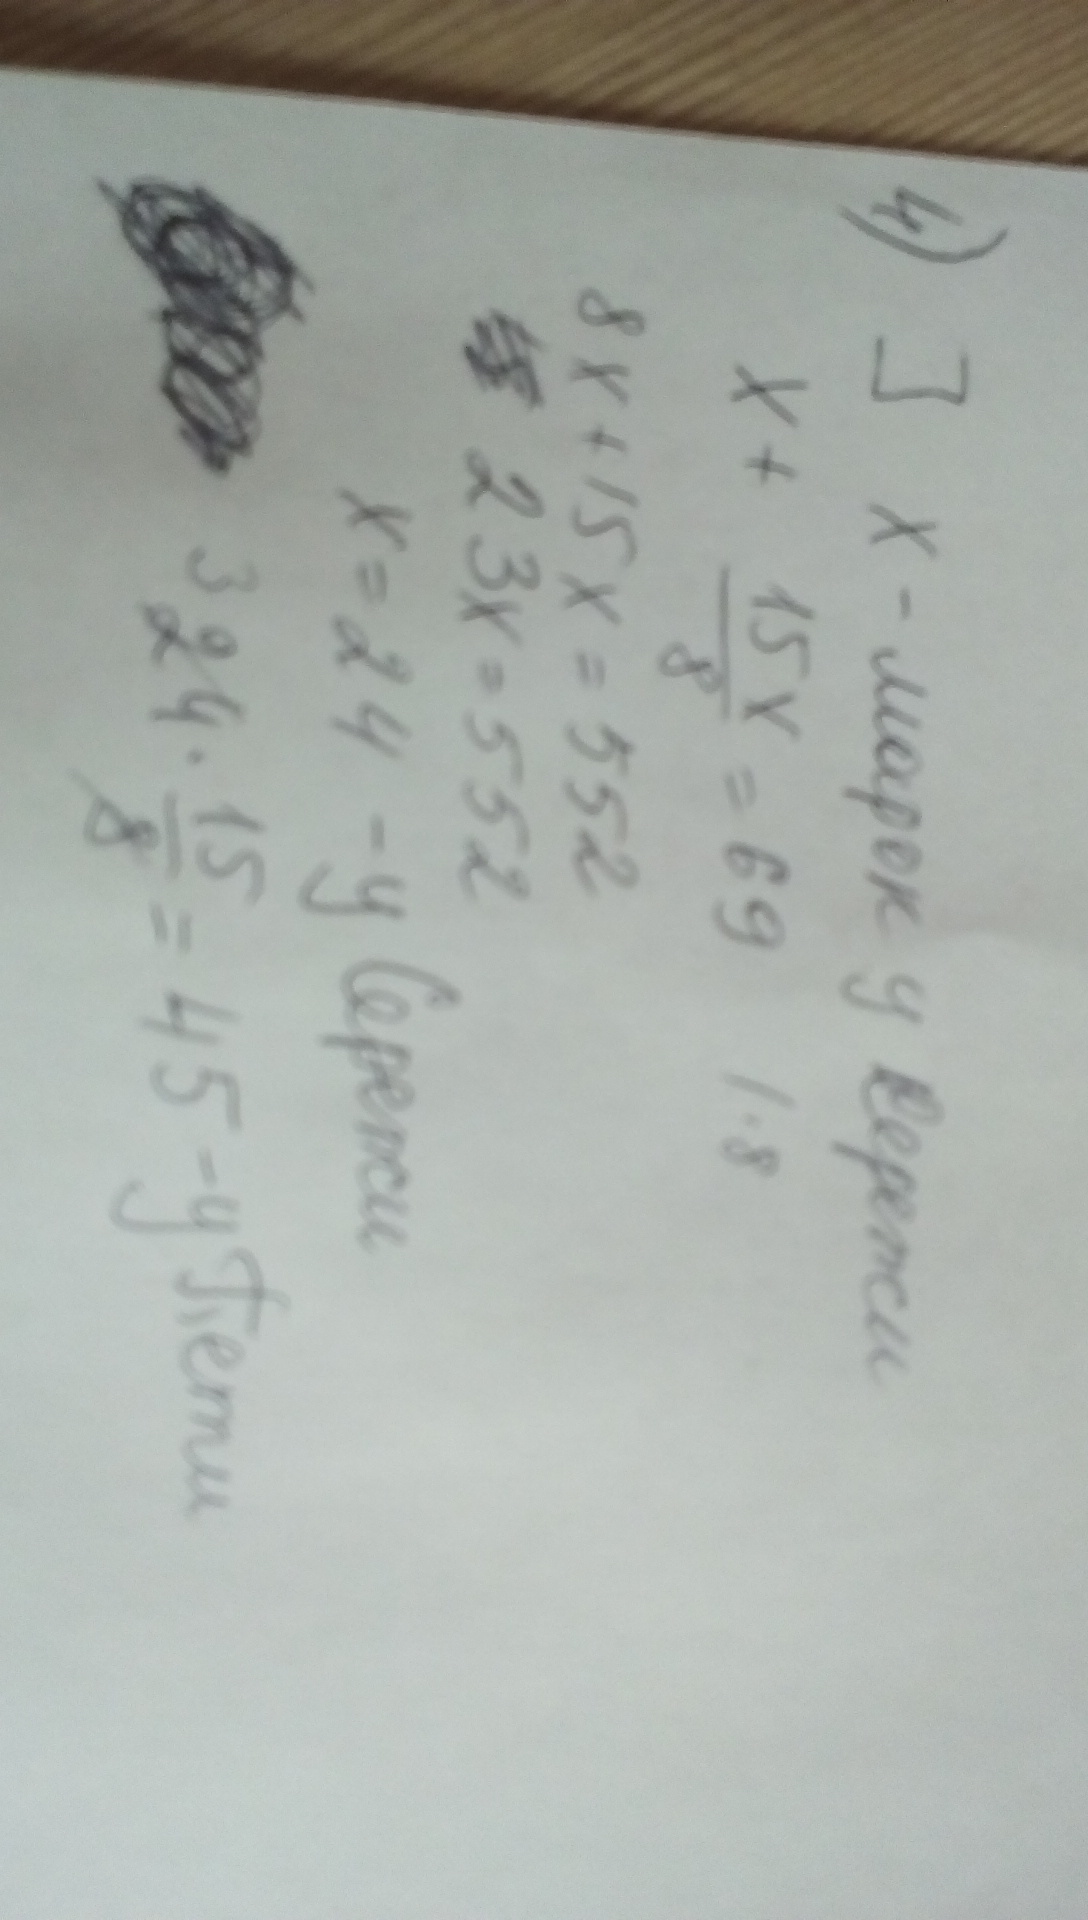 4) ] x - марок у Сережи
x + 15x/8 = 69 | · 8
8x + 15x = 552
23x = 552
x = 24 - у Сережи
3 24 · 15/8 = 45 - у Пети